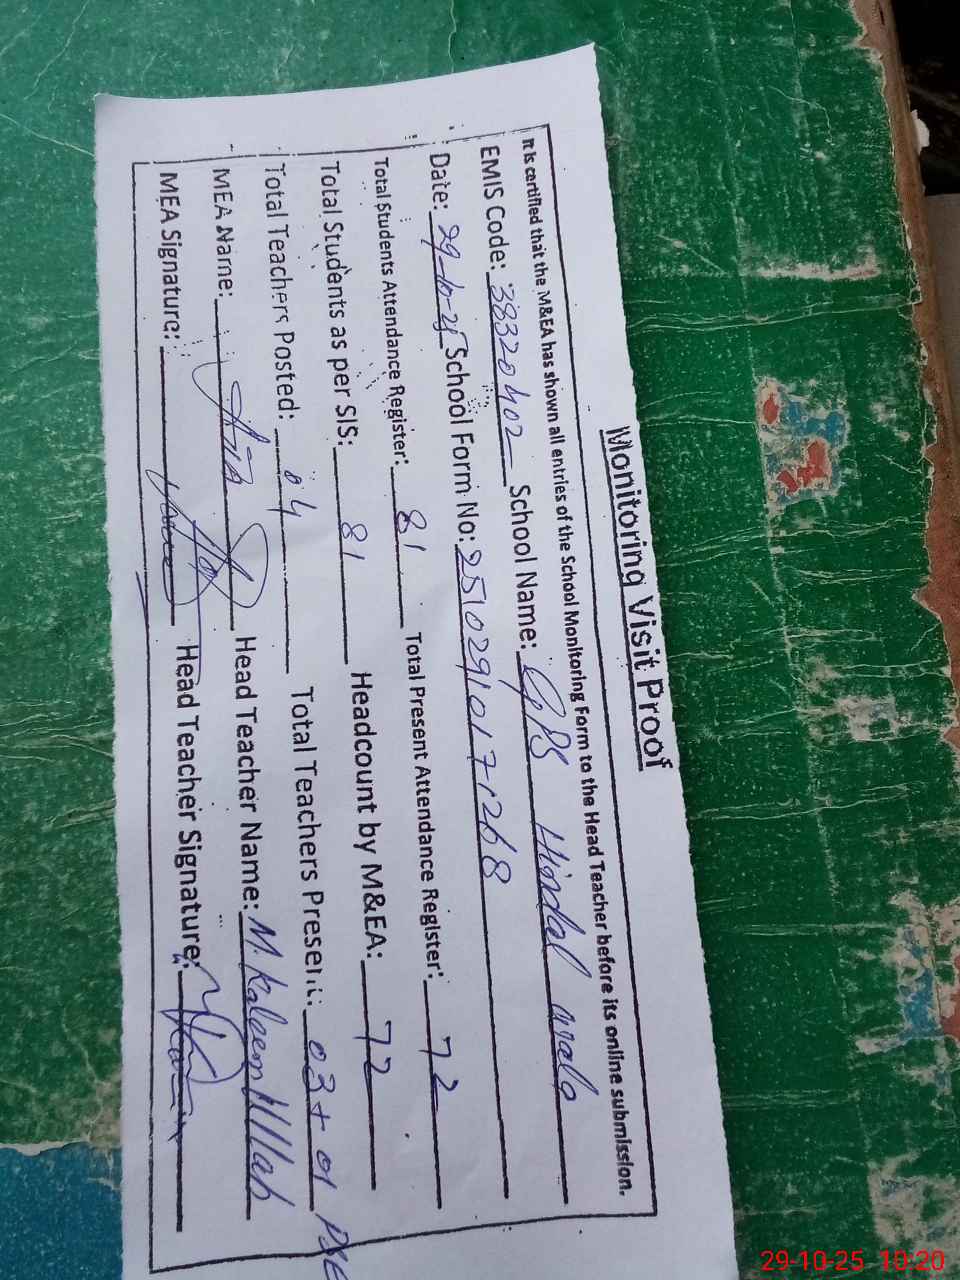 Monitoring Visit Proof
It is certified that the M&EA has shown all entries of the School Monitoring Form to the Head Teacher before its online submission.
EMIS Code: 38320402 School Name: GPS Hindal wala
Date: 29-10-25 School Form No: 25102910171268
Total Students Attendance Register: 81 Total Present Attendance Register: 72
Total Students as per SIS: 81 Headcount by M&EA: 72
Total Teachers Posted: 04 Total Teachers Present: 03 + 01 PSE
MEA Name: Head Teacher Name: M. Kaleem Ullah
MEA Signature: Head Teacher Signature:
29-10-25 10:20